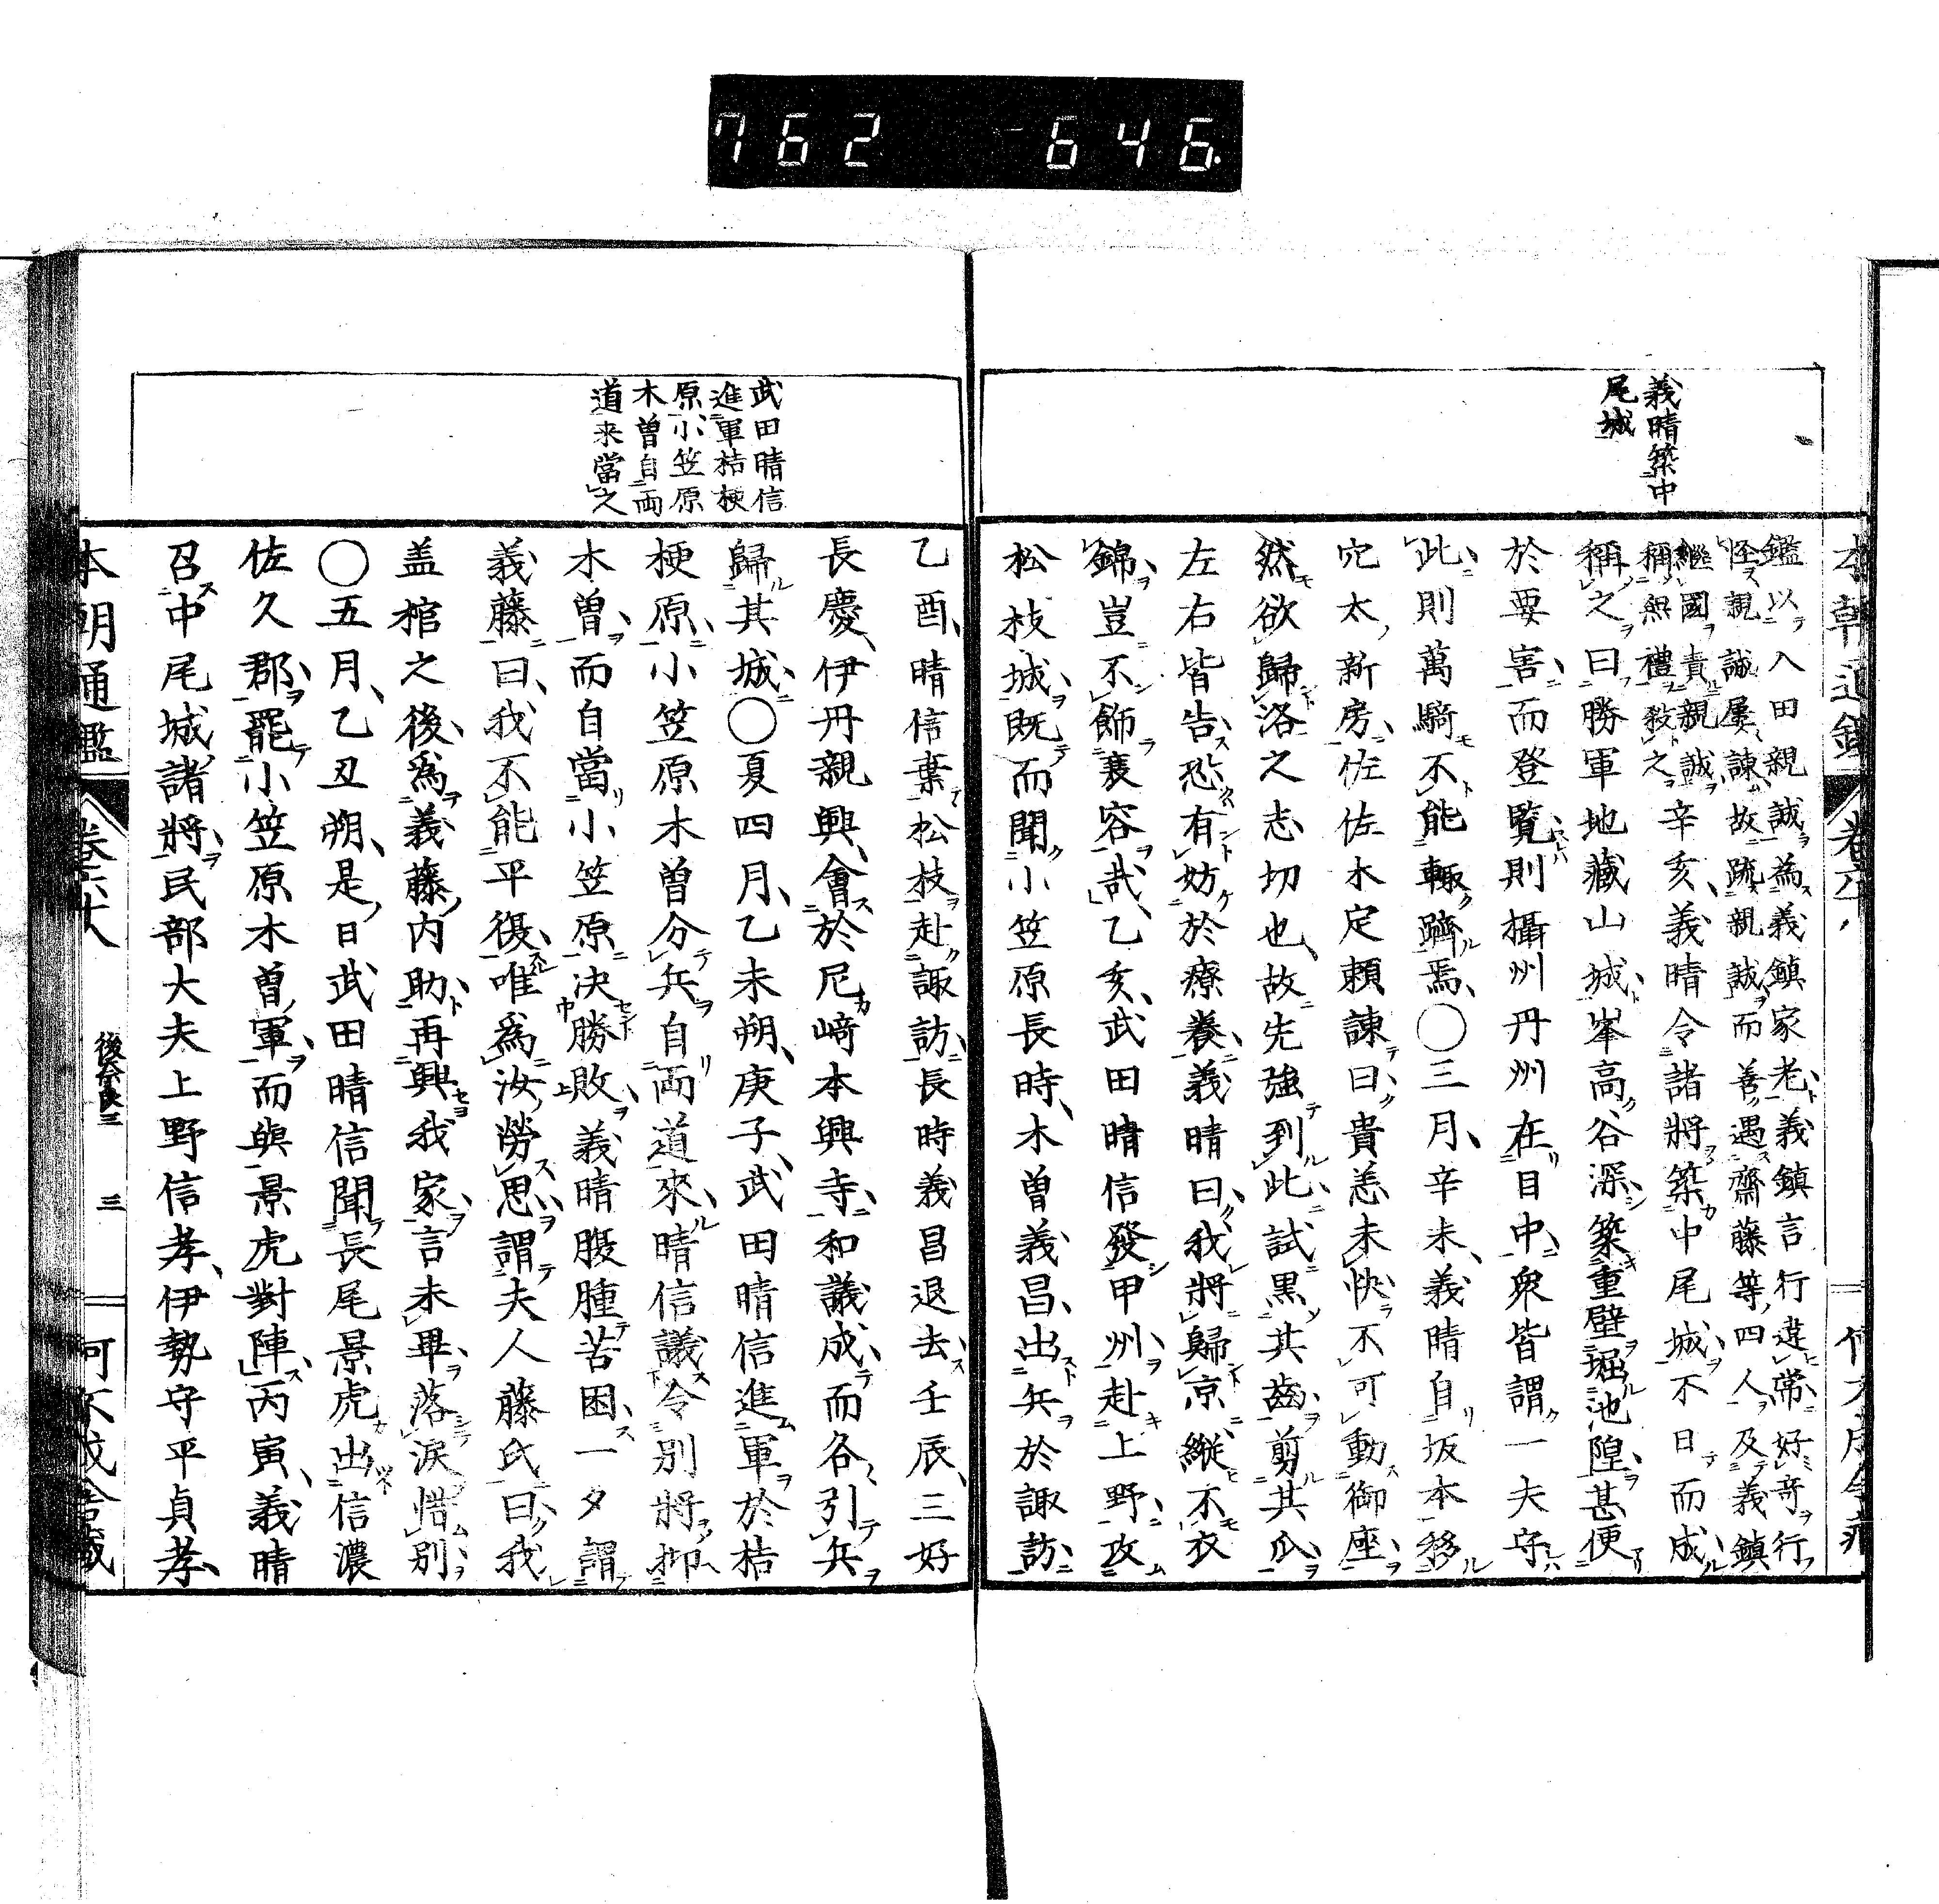 762 646
義晴築中
尾城
鑑以入田親誠為義鎮家老義鎮言行違常好奇行
怪親誠屢諫故疏親誠而善遇齋藤等四人及義鎮
繼國責親誠
稱無禮殺之辛亥義晴令諸將築中尾城不日而成
稱之曰勝軍地藏山城峯高谷深築重壁堀池隍甚便
於要害而登覽則攝州丹州在目中衆皆謂一夫守
此則萬騎不能輙躋焉〇三月辛未義晴自坂本移
穴太新房佐佐木定賴諫曰貴恙未快不可動御座
然欲歸洛之志切也故先強到此試黒其齒剪其瓜
左右皆告恐有妨於療養義晴曰我將歸京縱不衣
錦豈不飾襄容哉乙亥武田晴信發甲州赴上野攻
松枝城既而聞小笠原長時木曽義昌出兵於諏訪
武田晴信
進軍桔梗
原小笠原
木曽自両
道来當之
乙酉晴信棄松枝赴諏訪長時義昌退去壬辰三好
長慶伊丹親興會於尼﨑本興寺和議成而各引兵
歸其城〇夏四月乙未朔庚子武田晴信進軍於桔
梗原小笠原木曽分兵自両道來晴信議令別將抑
木曽而自當小笠原决勝敗義晴腹腫苦困一夕謂
義藤曰我不能平復唯為汝勞思謂夫人藤氏曰我
盖棺之後爲義藤内助再興我家言未畢落涙惜別
〇五月乙丑朔是日武田晴信聞長尾景虎出信濃
佐久郡罷小笠原木曽軍而與景虎對陣丙寅義晴
召中尾城諸將民部大夫上野信孝伊勢守平貞孝
本朝通鑑 後奈良三 三